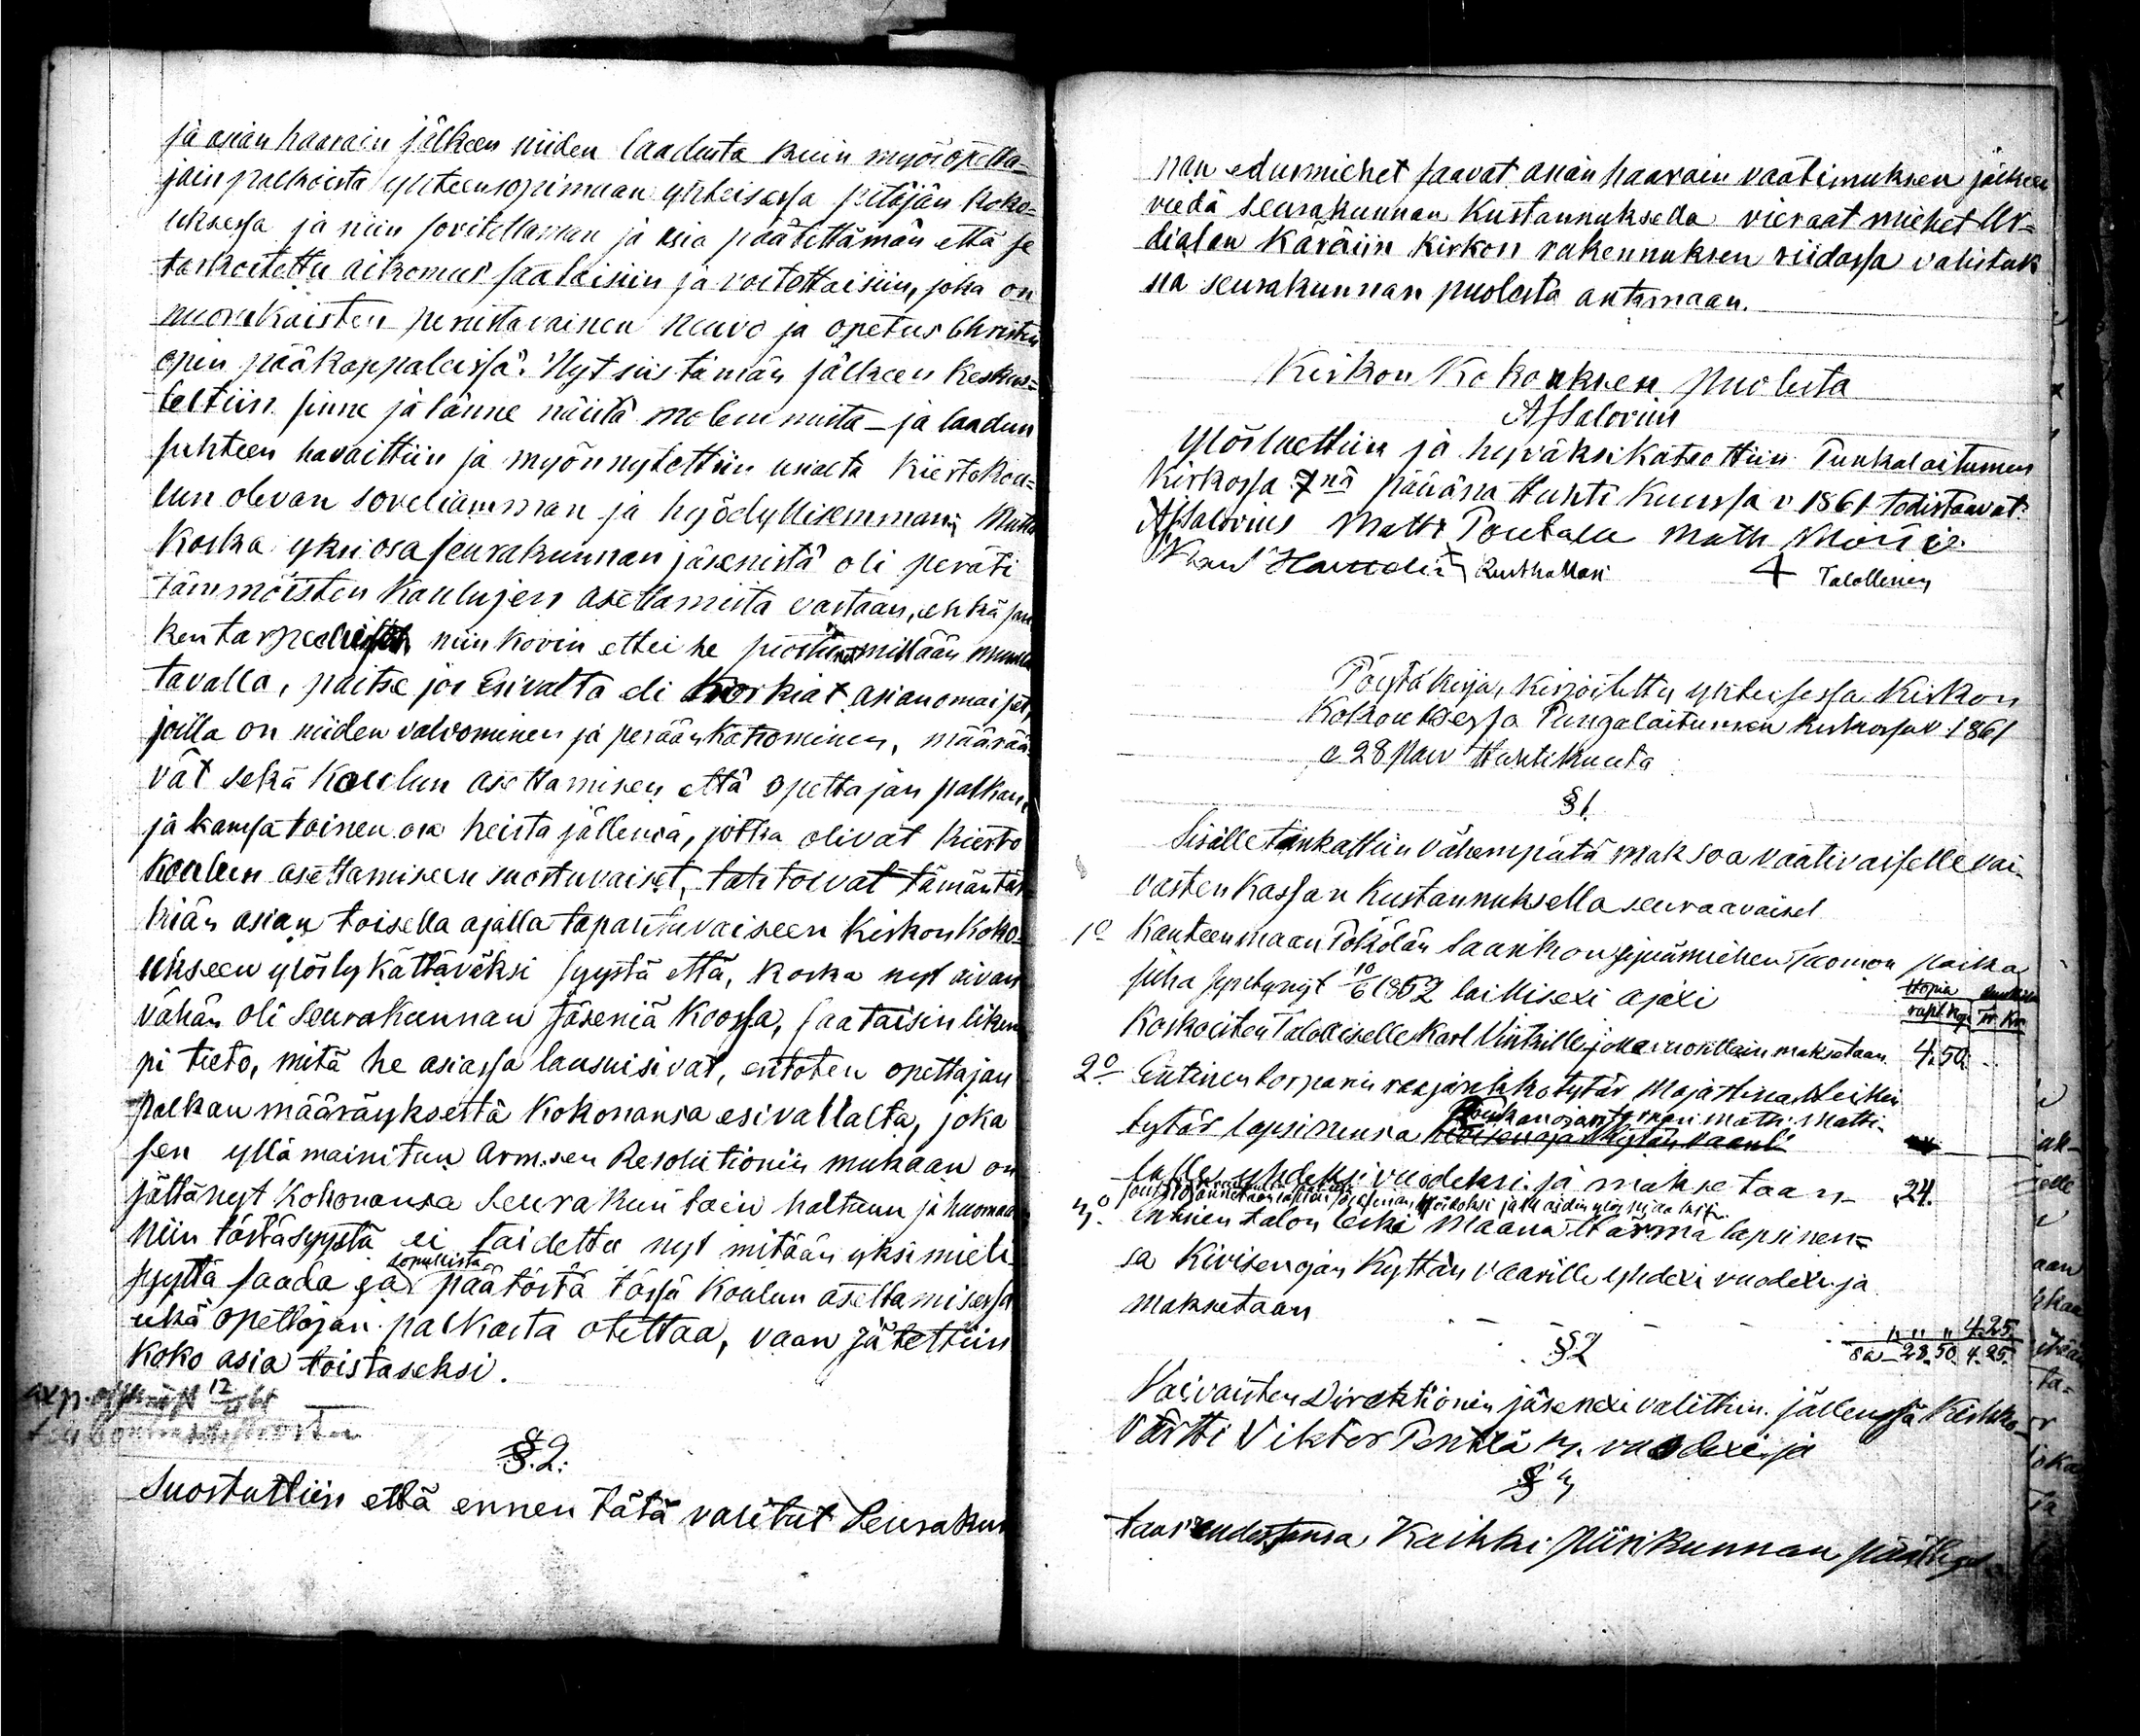 ja asian haarain jälkeen niiden laadusta kuin myös opetta-
jain palkoista yhteensopimaan yhteisessa pitäjän koko-
uksessa ja niin sovitettaman ja asia päätettämän että se
tarkoitettu aikomus saataisiin ja voitettaisiin, joka on
nuorukaisten perustavainen neuvo ja opetus Christin
opin pääkappaleissa. Nyt siis tämän jälkeen keskus-
teltiin sinne ja tänne näistä molemmista – ja laadun
suhteen havaittiin ja myönnytettiin usialta kiertokou-
lun olevan soveliamman ja hyödyllisemman; Mutta
koska yksi osa seurakunnan jäsenistä oli peräti
tämmöisten koulujen asettamista vastaan, ehkä
niin kovin ettei he millään muulla
tavalla, paitse jos Esivalta eli korkiat asianomaiset,
joilla on niiden valvominen ja perään katsominen, määrää-
vät sekä koulun asettamisen että opettajan palkan,
ja kansa toinen osa heista jällensä, jotka olivat kierto
koulun asettamiseen suostuvaiset, tahtoivat tämän tär-
kiän asian toisella ajalla tapahtuvaiseen Kirkon koko-
ukseen ylöslykättäväksi syystä että, koska nyt aivan
vähän oli seurakunnan jäseniä koossa, saataisin likem
pi tieto, mitä he asiassa lausuisivat, entoten opettajan
palkan määräyksestä kokonansa esivallalta, joka
sen yllämainitun Arm.sen Resolutionin mukaan on
jättänyt kokonansa seurakuntain haltuun ja huomaan
Niin tästäsyystä ei taidettu nyt mitään yksimieli-
syyttä saada ja sopullista päätöstä tässä koulun asettamisessa
eikä opettajan palkasta otettaa, vaan jätettiin
koko asia toistaseksi.
§.2.
Suostuttiin että ennen tätä valitut Seurakun
nan edusmiehet saavat asian haarain vaatimuksen jälkeen
viedä seurakunnan kustannuksella vieraat miehet Ur-
dialan Käräiin kirkon rakennuksen riidassa valistuk
sia seurakunnan puolesta antamaan.
Kirkon Kokouksen puolesta
Af Salovius
Ylösluettiin ja hyväksikatsottiin Punkalaitumen
kirkossa 7nä päivänä Huhti Kuussa v 1861 todistaavat:
Af Salovius Matts Poutala Matts
Talollinen
Pöytäkirja, kirjoitettu yhteisessa Kirkon
Kokouksessa Pungalaitumen kirkossa v. 1861
a 28 päiv Huhtikuuta
§1.
Sisälle tinkattiin vähempätä maksoa vaativaiselle vai-
vasten Kassan kustannuksella seuraavaiset
1o Kanteenmaan Pökölän Saarikon Tuomon poika
Juha syndynyt 10/6 1852 laillisexi ajaxi
Hopia
rupl. kop.
Koskoisten Talolliselle Karl Vintrille jolle vuosittain maksetaan 4. 50.
2o Entinen torparin Maja Stina
tytär lapsinensa
lalle yhdeksi vuodeksi ja maksetaan 24.
3o Entisen talon leski Maana Härmä lapsinen-
sa Kivisenojan Kyttän vaarille yhdexi vuodexi ja
maksetaan 4.25.
28. 50. 4. 25.
§2
Vaivaisten Direktionin jäsenexi valittiin jällensä Kirkko-
Värtti Viktor Pentilä 3. vuodexi ja
§ 3
taas uudestansa Kaikki piirikunnan